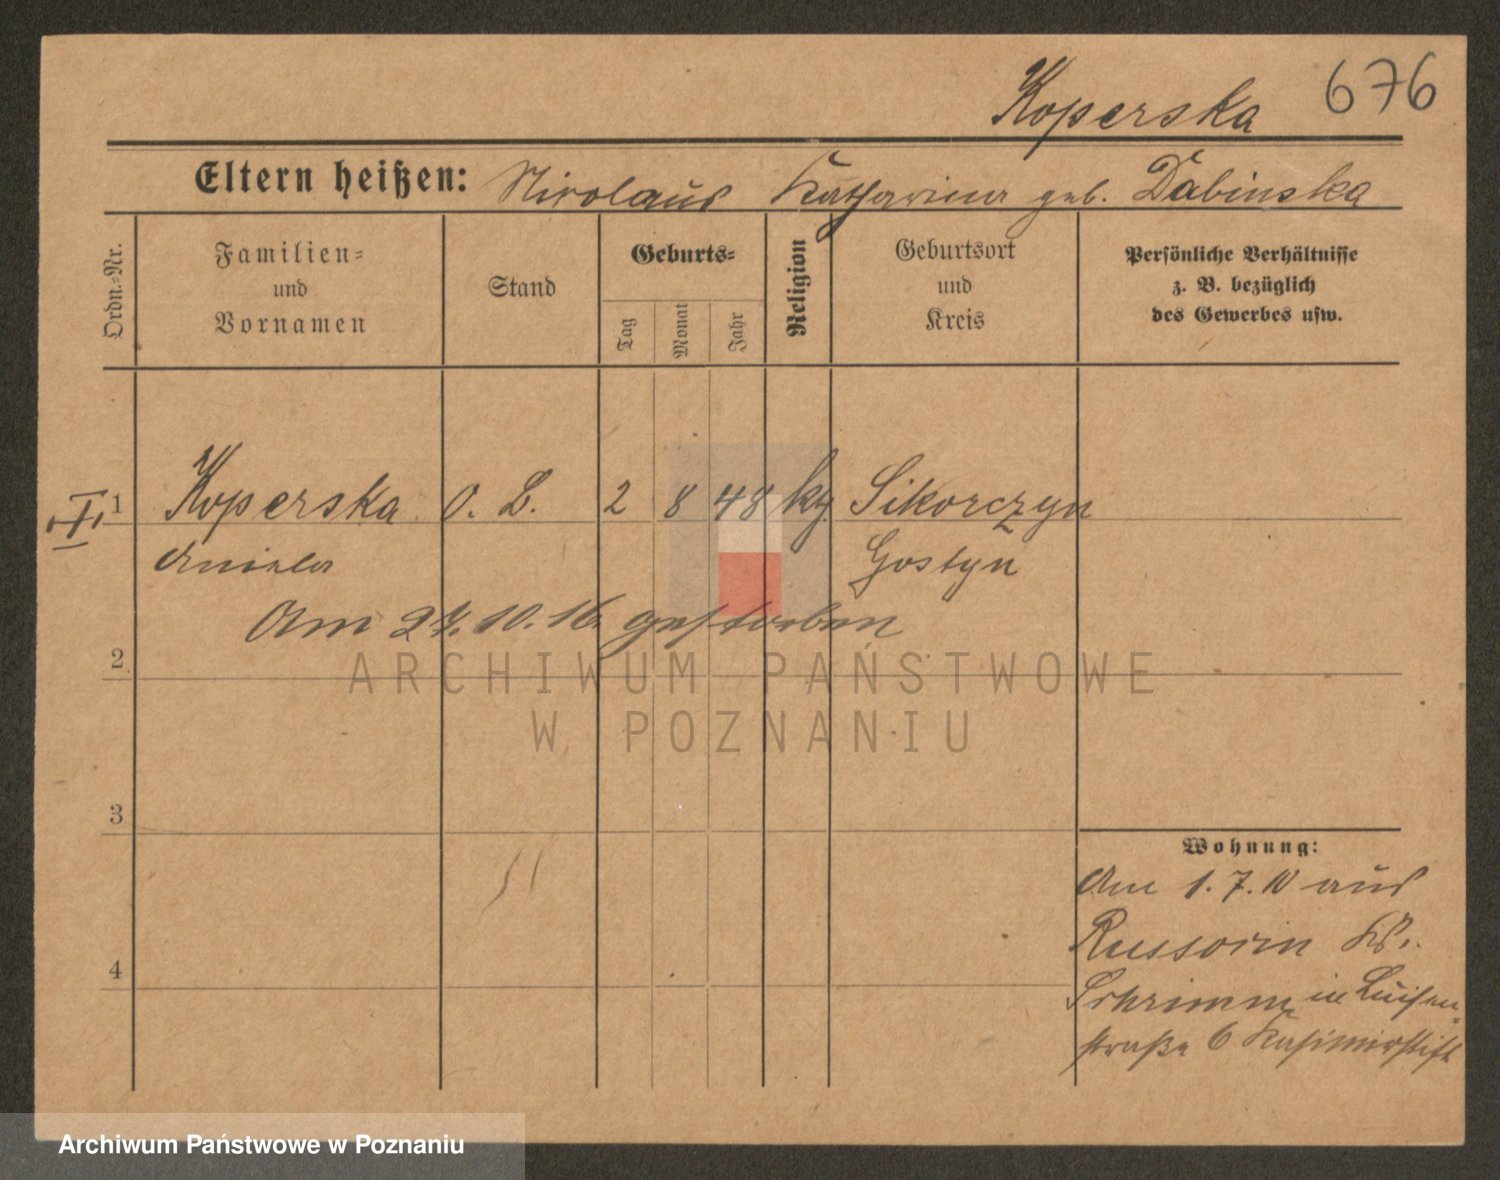 Koperska 676
Eltern heißen: Nikolaus Katharina geb. Dabinska
Ordn.-Nr.
Familien-
und
Vornamen
Stand
Geburts-
Tag
Monat
Jahr
Religion
Geburtsort
und
Kreis
Persönliche Verhältnisse
z. B. bezüglich
des Gewerbes usw.
1 Koperska o. B. 2 8 48 kg. Sikorczyn
Aniela Gostyn
Am 27.10.16 gestorben
2
3
4
Wohnung:
Am 1.7.10 aus
Russocin Kr.
Schrimm in Luisen-
straße 6 Kasimirstift
ARCHIWUM PAŃSTWOWE
W POZNANIU
Archiwum Państwowe w Poznaniu